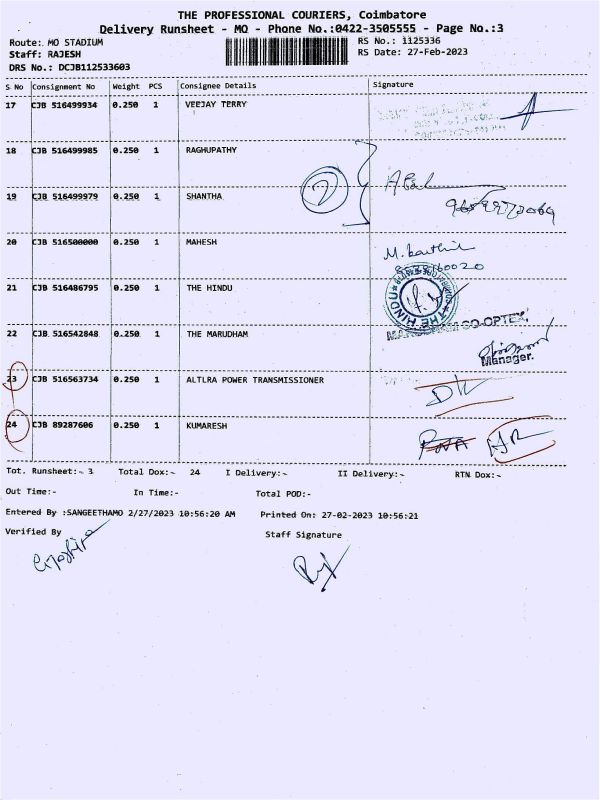 THE PROFESSIONAL COURIERS, Coimbatore
Delivery Runsheet - MQ - Phone No.:0422-3505555 - Page No.:3
Route: MO STADIUM RS No.: 1125336
Staff: RAJESH RS Date: 27-Feb-2023
DRS No.: DCJB112533603
S No Consignment No Weight PCS Consignee Details Signature
17 CJB 516499934 0.250 1 VEEJAY TERRY
18 CJB 516499985 0.250 1 RAGHUPATHY
19 CJB 516499979 0.250 1 SHANTHA
20 CJB 516500000 0.250 1 MAHESH
21 CJB 516486795 0.250 1 THE HINDU
THE HINDU
CO-OPTEX,
22 CJB 516542848 0.250 1 THE MARUDHAM
Manager.
23 CJB 516563734 0.250 1 ALTLRA POWER TRANSMISSIONER
24 CJB 89287606 0.250 1 KUMARESH
Tot. Runsheet:- 3 Total Dox:- 24 I Delivery:- II Delivery:- RTN Dox:-
Out Time:- In Time:- Total POD:-
Entered By :SANGEETHAMO 2/27/2023 10:56:20 AM Printed On: 27-02-2023 10:56:21
Verified By Staff Signature